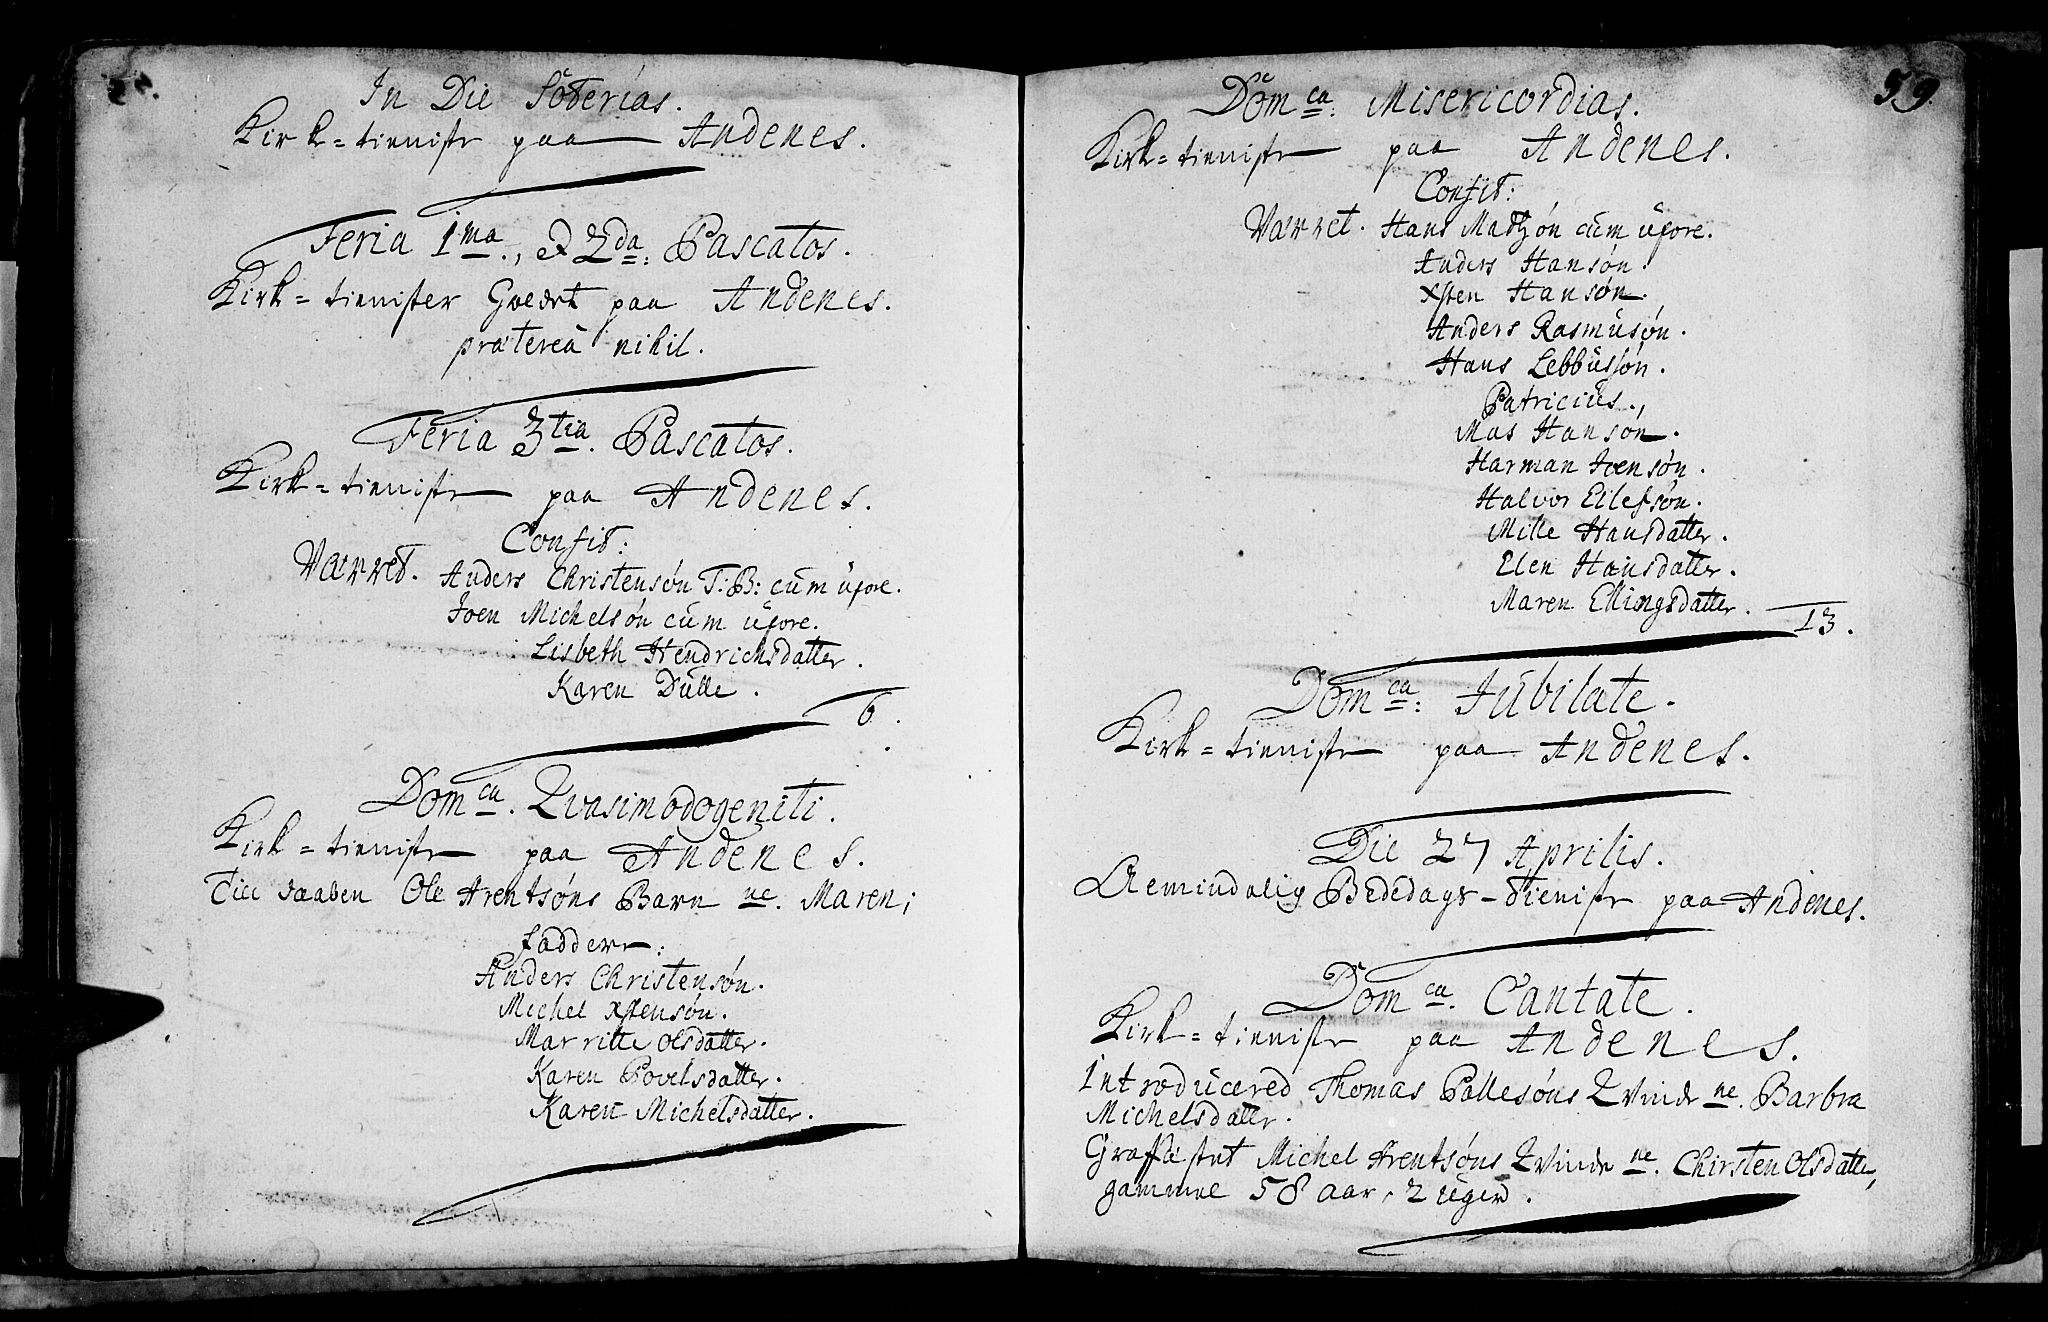 In Die Soterias.
Kirk=tieniste paa Andenes.
Feria 1ma., & 2da: Pascatos.
Kirk=tienister Gveært paa Andenes.
prætereà nihil.
Feria 3tia. Pascatos.
Kirk=tieniste paa Andenes.
Confit:
Værret. Anders Christensøn T:B: cum ùxore.
Joen Michelsøn cùm ùxore.
Lisbeth Hendrichsdatter.
Karen Dùlle.
6.
Domca. Qvasimodogeniti.
Kirk=tieniste paa Andenes.
Till daaben Ole Arentsøns Barn ne. Maren;
faddere:
Anders Christensøn.
Michel Xstensøn.
Marritte Olsdatter.
Karen Povelsdatter.
Karen Michelsdatter.
59.
Domca: Misericordias.
Kirk=tieniste paa Andenes.
Confit:
Værret. Hans Matzøn cùm ùxore.
Anders Hansøn.
Xsten Hansøn.
Anders Rasmùsøn.
Hans Lebbùssøn.
Patriciùs.,
Mas Hansøn.
Harman Ivensøn.
Halvor Ellefsøn.
Mille Hansdatter.
Elen Hansdatter.
Maren Ellingsdatter.
13.
Domca: Jùbilate.
Kirk=tieniste paa Andenes.
Die 27 Aprilis.
Almindelig Bededags-tieniste paa Andenes.
Domca. Cantate.
Kirk=tieniste paa Andenes.
Introdùcered Thomas Pallesøns Qvinde ne. Barbra
Michelsdatter.
Graffæstet Michel Arentsøns Qvinde ne. Chirsten Olsdatter,
gammel 58 aar, 2 ùger.